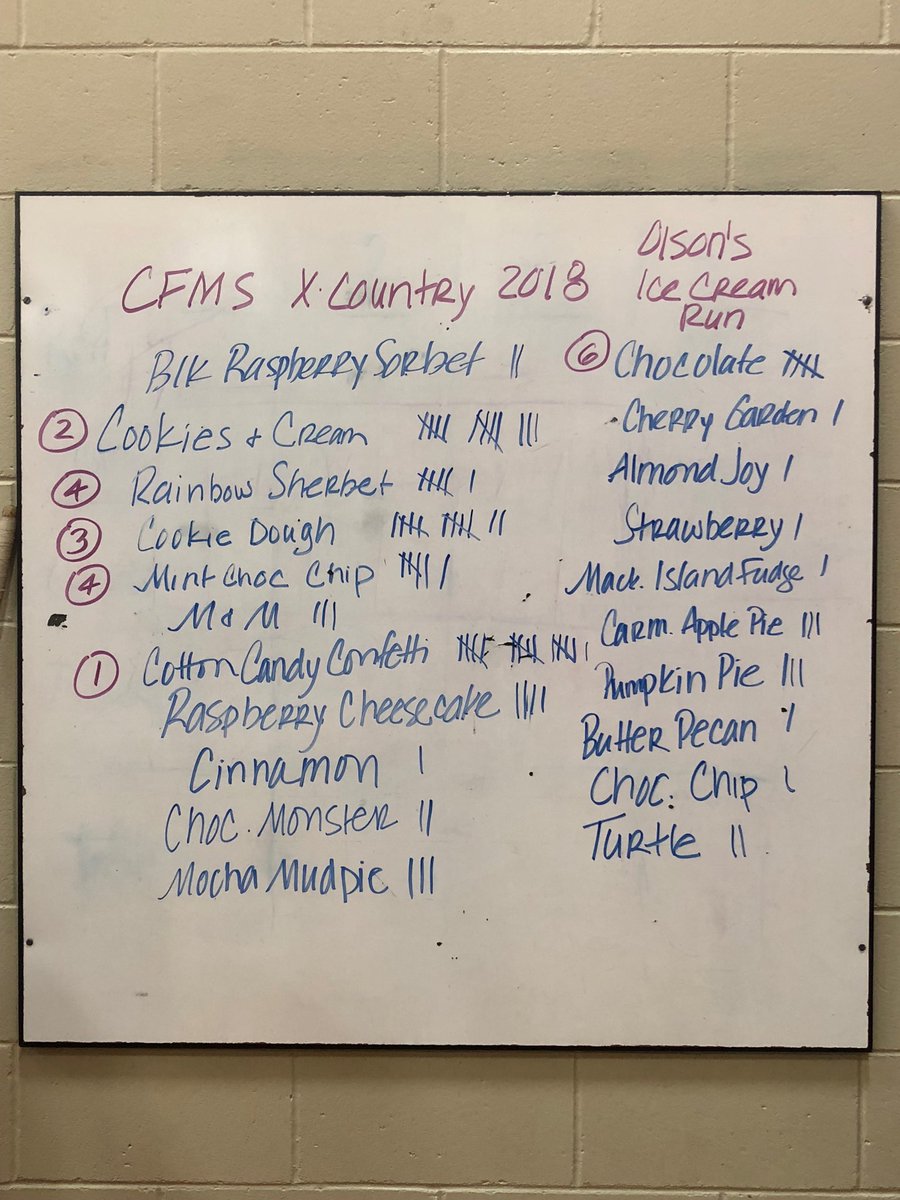 CFMS X-Country 2018
Olson's
Ice Cream
Run
Blk Raspberry Sorbet ||
② Cookies & Cream 卌 卌 |||
④ Rainbow Sherbet 卌 |
③ Cookie Dough 卌 卌 ||
④ Mint Choc Chip 卌 |
M & M |||
① Cotton Candy Confetti 卌 卌 卌 |
Raspberry Cheesecake ||||
Cinnamon |
Choc. Monster ||
Mocha Mudpie |||
⑥ Chocolate 卌
Cherry Garden |
Almond Joy |
Strawberry |
Mack. Island Fudge |
Carm. Apple Pie |||
Pumpkin Pie |||
Butter Pecan |
Choc. Chip |
Turtle ||